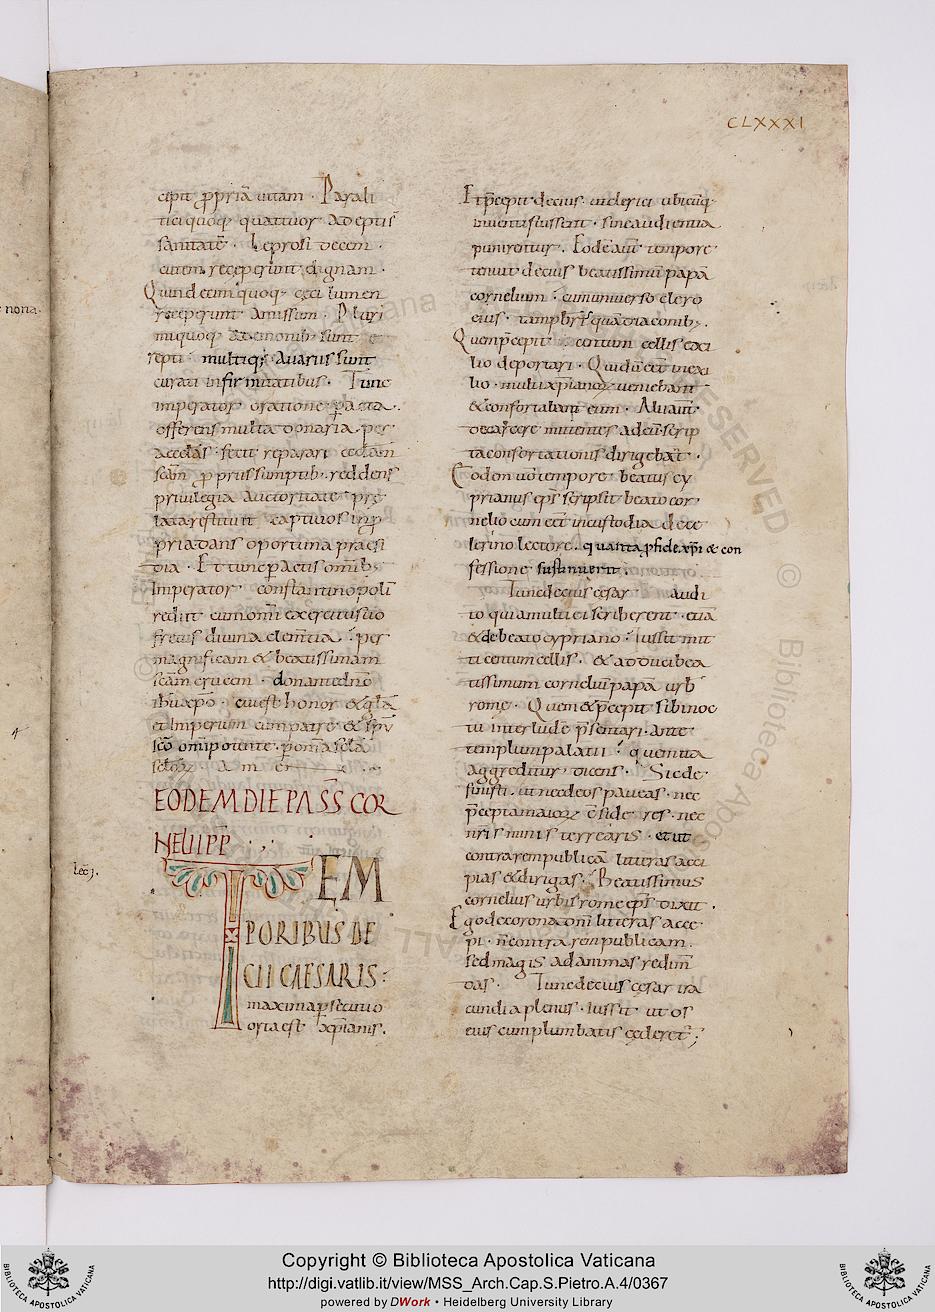 CLXXXI
cepit ꝓpriā uitam · Parali
tici quoq; quattuor adepti s̄
sanitatē · Leprosi decem ·
cutem receperunt dignam ·
Quindecim quoq; ceci lumen
receperunt amissum · Pluri
miquoq; a demonib; sunt e
repti · multiq; a uariis sunt
curati infirmitatibus · Tunc
imperator oratione ꝑacta ·
offerens multa donaria · per
accęlās · fecit reparari eccłam
scām ꝓpriis sumptib; reddens
privilegia auctoritate
lata restituit captiuos inꝓ
pria dans oportuna praesi
dia · Et tunc ꝑactis omīb;
Imperator constantinopoli
rediit cum omī exercitu suo
fretus diuina clem̄tia · per
magnificam & beatissimam
scām crucem · donante dn̄o
ihū xp̄o · cui est honor & glā
et Imperium cum patre & spū
scō om̄ipotente · ꝑ om̄ia sc̄la
sc̄loꝝ a m e n
EODEM DIE PASS̄ COR
NELII PP̄
Lec̄.
TEM
PORIBUS DE
CII CAESARIS:
maxima ꝑsecutio
orta est xp̄ianis.
Et p̄cepit decius ut clerici ubicūq;
inuenti fuissent · sine audientia
punirentur. Eodē aut̄ tempore
tenuit decius beatissimū papā
cornelium · cum uniuerso clero
eius · tam pb̄ros quā diaconib; ·
Quem p̄cepit centum cellis exi
lio deportari · Qui dū eēt in exi
lio · multi xp̄ianoꝝ ueniebant
& confortabant eum · Alii aut̄
de carcere mittentes ad eū scrip
ta confortationis dirigebāt ·
Eodem uō tempore beatus cy
prianus ep̄s scripsit beato cor
nelio cum eēt in custodia de ce
lerino lectore · quanta ꝓ fide xp̄i & con
fessione sustinuerit ·
Tunc decius cesar audi
to quia multi ei scriberent · etiā
& de beato cypriano · iussit mit
ti centum cellis · & adduci bea
tissimum corneliū papā urb̄
rome · Quem & p̄cepit sibi noc
tu interlude p̄sentari · ante
templum palatii · quem ita
aggreditur dicens · Sic de
finisti · ut nec deos paueas · nec
p̄cepta maioꝝ c̄sideres · nec
nr̄is minis terrearis · et ut
contra rem publicā literas acci
pias & dirigas · Beatissimus
cornelius urbis rome ep̄s dixit ·
Ego de corona dn̄i literas acce
pi · n̄ contra rem publicam ·
sed magis ad animas redim̄
das · Tunc decius cesar ira
cundia plenus · iussit ut os
eius cum plumbatis cęderet̄;
Copyright © Biblioteca Apostolica Vaticana
http://digi.vatlib.it/view/MSS_Arch.Cap.S.Pietro.A.4/0367
powered by DWork • Heidelberg University Library